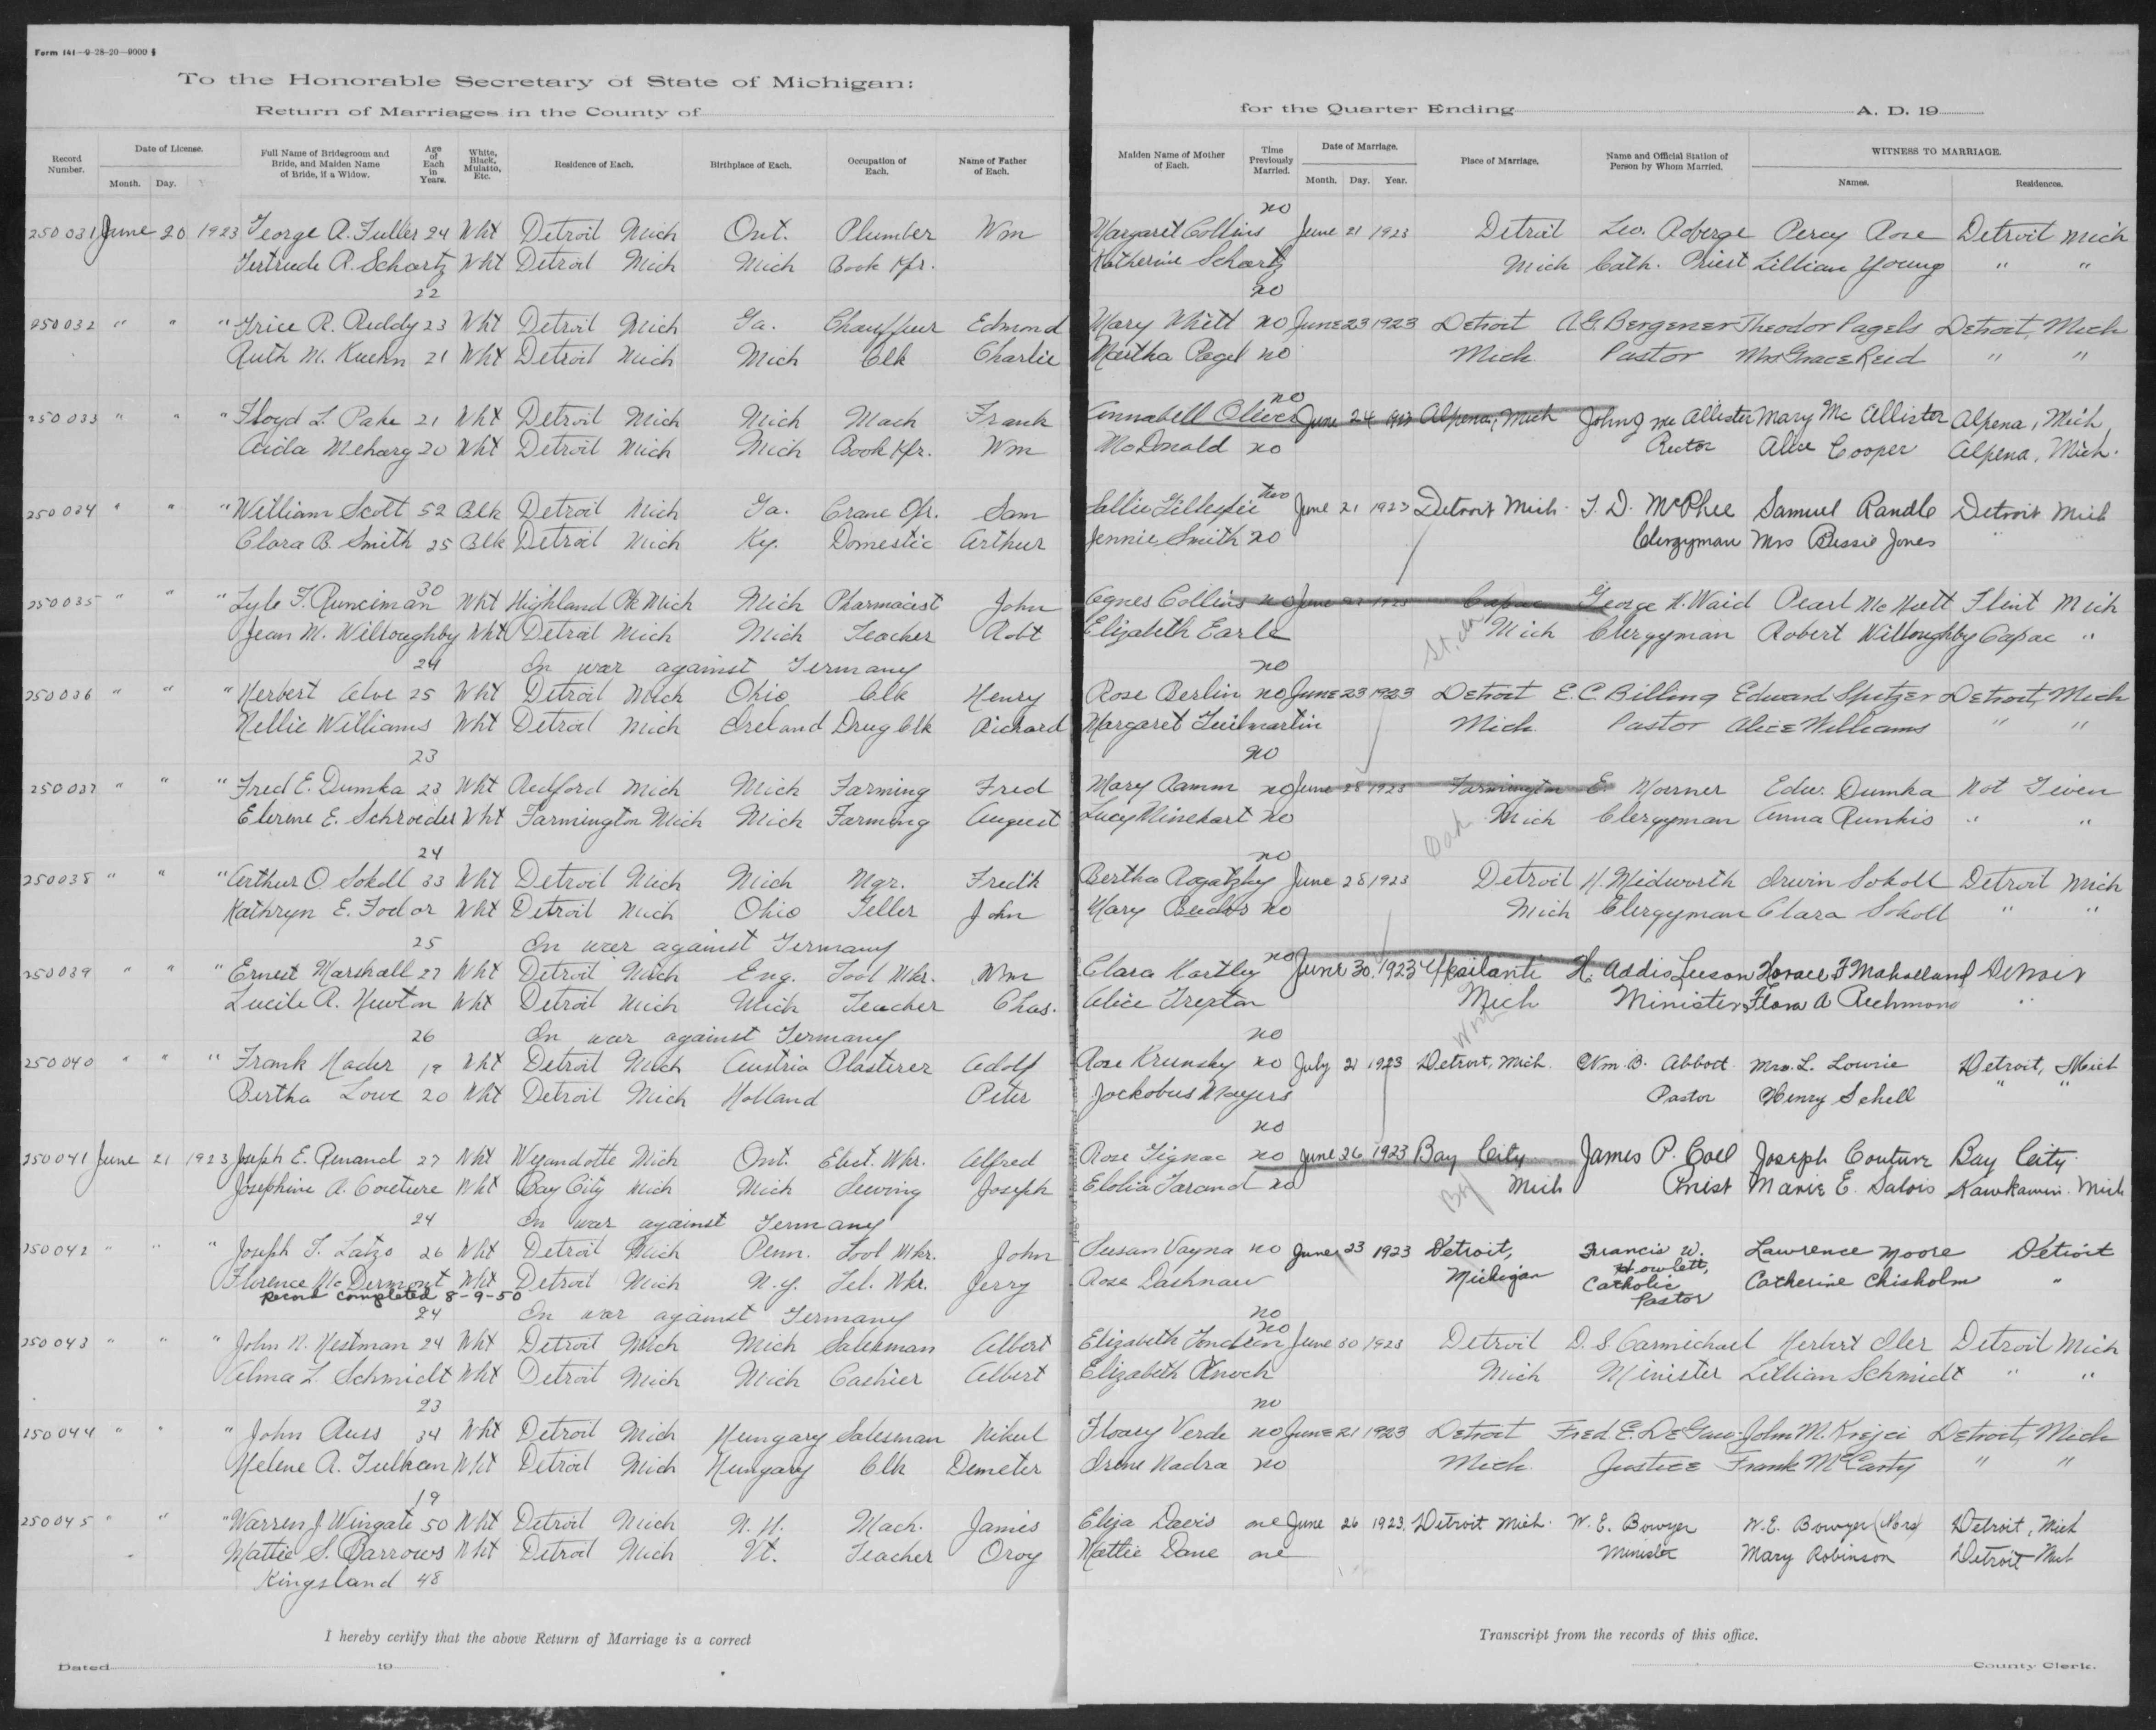 Form 141—9-28-20—9000 §
To the Honorable Secretary of State of Michigan:
Return of Marriages in the County of
for the Quarter Ending A. D. 19
Record Number. Date of License. Month. Day. Full Name of Bridegroom and Bride, and Maiden Name of Bride, if a Widow. Age of Each in Years. White, Black, Mulatto, Etc. Residence of Each. Birthplace of Each. Occupation of Each. Name of Father of Each.
Maiden Name of Mother of Each. Time Previously Married. Date of Marriage. Month. Day. Year. Place of Marriage. Name and Official Station of Person by Whom Married. WITNESS TO MARRIAGE. Names. Residences.
no
250031 June 20 1923 George A. Fuller 24 Wht Detroit Mich Ont. Plumber Wm Margaret Collins June 21 1923 Detroit Leo. Roberge Percy Rose Detroit Mich
Gertrude R. Schartz Wht Detroit Mich Mich Book Kpr. Katherine Schartz Mich Cath. Priest Lillian Young " "
22 no
250032 " " " Grice R. Reddy 23 Wht Detroit Mich Ga. Chauffeur Edmond Mary Whitt no June 23 1923 Detroit A.G. Bergener Theodor Pagels Detroit, Mich
Ruth M. Kuehn 21 Wht Detroit Mich Mich Clk Charlie Martha Pagel no Mich Pastor Mrs Grace Reid " "
no
250033 " " " Floyd L. Pake 21 Wht Detroit Mich Mich Mach Frank Annabell Oliver June 24 1923 Alpena, Mich John J McAllister Mary McAllister Alpena, Mich,
Aida Meharg 20 Wht Detroit Mich Mich Book Kpr. Wm McDonald no Rector Alice Cooper Alpena, Mich.
250034 " " " William Scott 52 Blk Detroit Mich Ga. Crane Opr. Sam Sallie Gillespie two June 21 1923 Detroit Mich. T. D. McPhee Samuel Randle Detroit Mich
Clara B. Smith 25 Blk Detroit Mich Ky. Domestic Arthur Jennie Smith no Clergyman Mrs Bessie Jones "
30
250035 " " " Lyle F. Runciman Wht Highland Pk Mich Mich Pharmacist John Agnes Collins no June 1923 Capac George H. Waid Pearl McNutt Flint Mich
Jean M. Willoughby Wht Detroit Mich Mich Teacher Robt Elizabeth Earle St. Clair Mich Clergyman Robert Willoughby Capac "
24 On war against Germany no
250036 " " " Herbert Alve 25 Wht Detroit Mich Ohio Clk Henry Rose Berlin no June 23 1923 Detroit E. C. Billing Edward Spitzer Detroit, Mich
Nellie Williams Wht Detroit Mich Ireland Drug Clk Richard Margaret Guilmartin Mich. Pastor Alice Williams " "
23 no
250037 " " " Fred E. Dumka 23 Wht Redford Mich Mich Farming Fred Mary Ramm no June 28 1923 Farmington E. Woerner Edw. Dumka Not Given
Elerene E. Schroeder Wht Farmington Mich Mich Farming August Lucy Minehart no Oak Mich Clergyman Anna Runkis " "
24 no
250038 " " " Arthur O. Sokoll 33 Wht Detroit Mich Mich Mgr. Fredk Bertha Rogatzky June 28 1923 Detroit H. Midworth Irwin Sokoll Detroit Mich
Kathryn E. Fodor Wht Detroit Mich Ohio Teller John Mary no Mich Clergyman Clara Sokoll " "
25 On war against Germany
250039 " " " Ernest Marshall 27 Wht Detroit Mich Eng. Tool Mkr. Wm Clara Hartley no June 30, 1923 Ypsilanti H. Addis Leeson Horace F Maholland Detroit
Lucile R. Newton Wht Detroit Mich Mich Teacher Chas. Alice Trexton Mich Minister Flora A Richmond "
26 On war against Germany no
250040 " " " Frank Mader 19 Wht Detroit Mich Austria Plasterer Adolf Rose Krunsky no July 21 1923 Detroit, Mich. Wm. B. Abbott Mrs. L. Lowrie Detroit, Mich
Bertha Lowe 20 Wht Detroit Mich Holland Peter Jockobus Mayers Pastor Henry Schell " "
no
250041 June 21 1923 Joseph E. Renaud 27 Wht Wyandotte Mich Ont. Elect. Wkr. Alfred Rose Tignac no June 26 1923 Bay City James P. Coll Joseph Couture Bay City
Josephine A. Couture Wht Bay City Mich Mich Sewing Joseph Elolia Tarand no Bay Mich Priest Marie E. Salois Kawkawin. Mich
24 On war against Germany
250042 " " " Joseph T. Latzo 26 Wht Detroit Mich Penn. Tool Mkr. John Susan Vayna no June 23 1923 Detroit, Francis W. Howlett, Lawrence Moore Detroit
Florence McDermott Wht Detroit Mich N.Y. Tel. Wkr. Jerry Rose Dashnaw Michigan Catholic Pastor Catherine Chisholm "
Record completed 8-9-50
24 On war against Germany no
no
250043 " " " John N. Nestman 24 Wht Detroit Mich Mich Salesman Albert Elizabeth June 30 1923 Detroit D. S. Carmichael Herbert Iler Detroit Mich
Alma L. Schmidt Wht Detroit Mich Mich Cashier Albert Elizabeth Knoch Mich Minister Lillian Schmidt " "
23 no
250044 " " " John Russ 34 Wht Detroit Mich Hungary Salesman Nikul Floary Verde no June 21 1923 Detroit Fred. E. DeGaw John M. Krejci Detroit, Mich
Helene A. Tulkan Wht Detroit Mich Hungary Clk Demeter Irene Nadra no Mich. Justice Frank McCarty " "
19
250045 " " " Warren J Wingate 50 Wht Detroit Mich N. H. Mach. James Eliza Davis one June 26 1923. Detroit Mich. W. E. Bowyer W. E. Bowyer (Mrs) Detroit, Mich
Mattie S. Barrows Wht Detroit Mich Vt. Teacher Oroy Nattie Dane one Minister Mary Robinson Detroit Mich
Kingsland 48
I hereby certify that the above Return of Marriage is a correct
Transcript from the records of this office.
Dated 19
County Clerk.